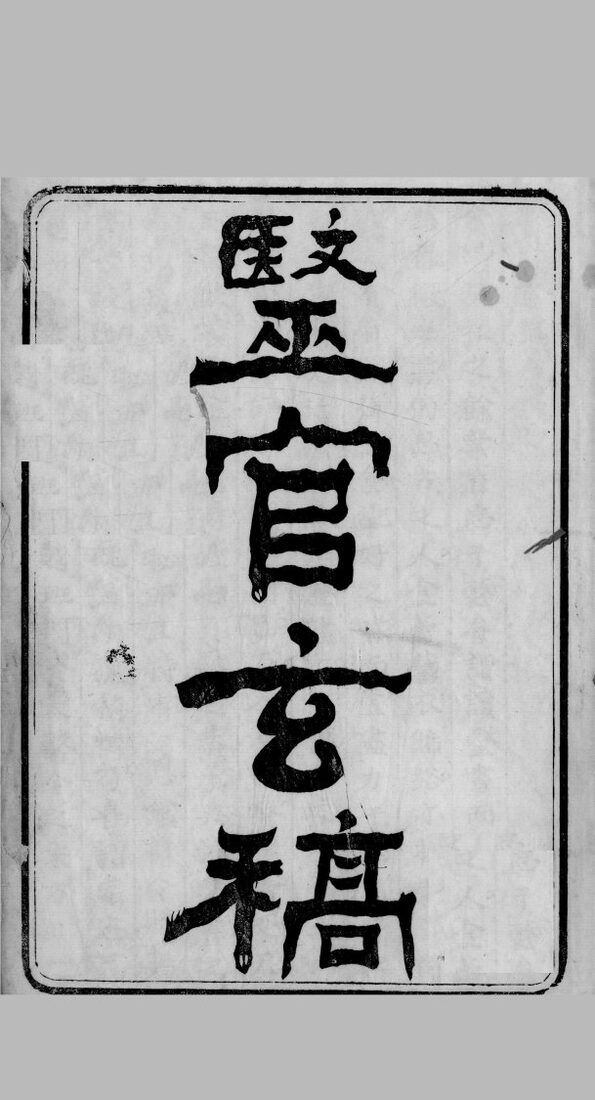 毉官玄稿